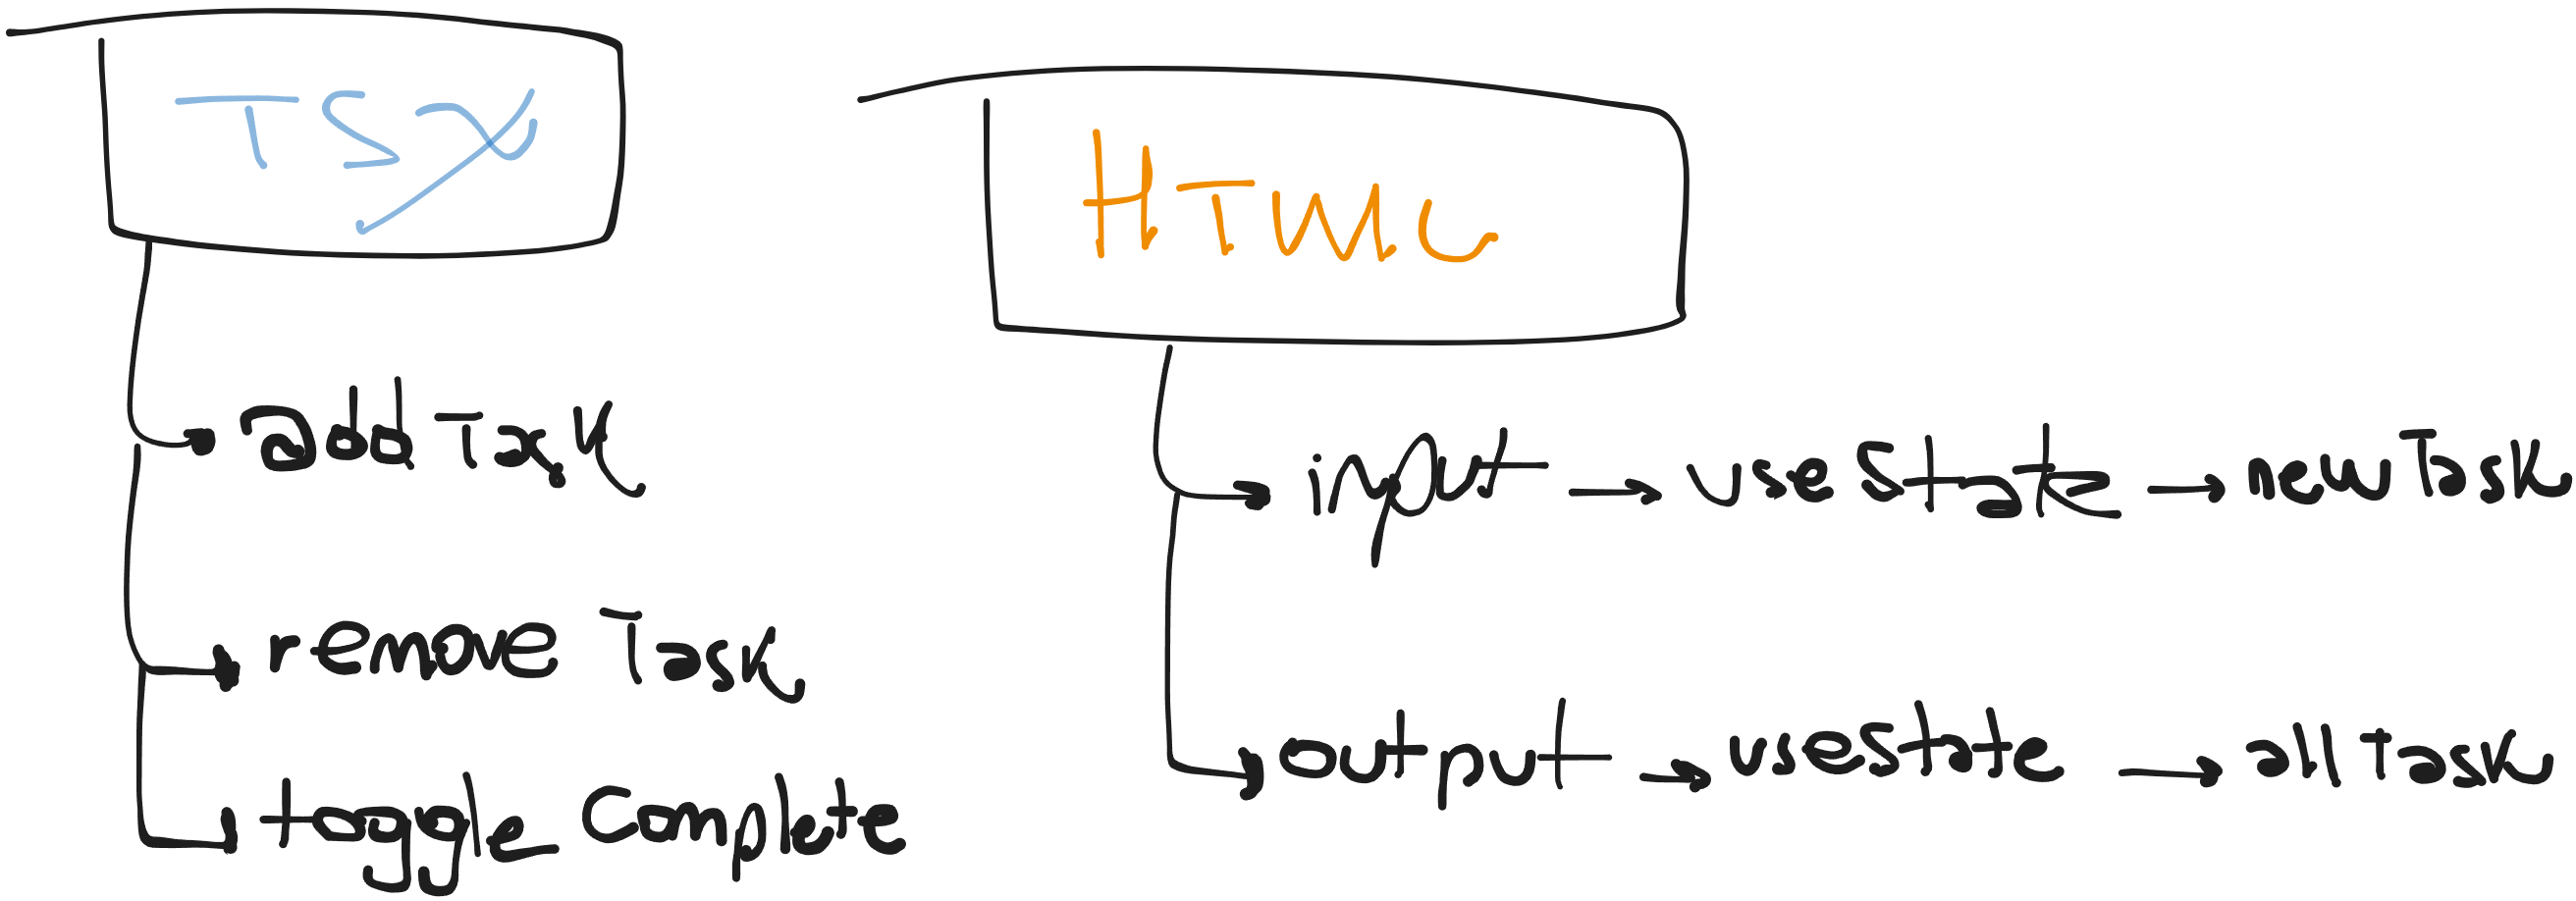 TSX
addTask
remove Task
toggle Complete
HTML
input → useState → newTask
output → useState → allTask